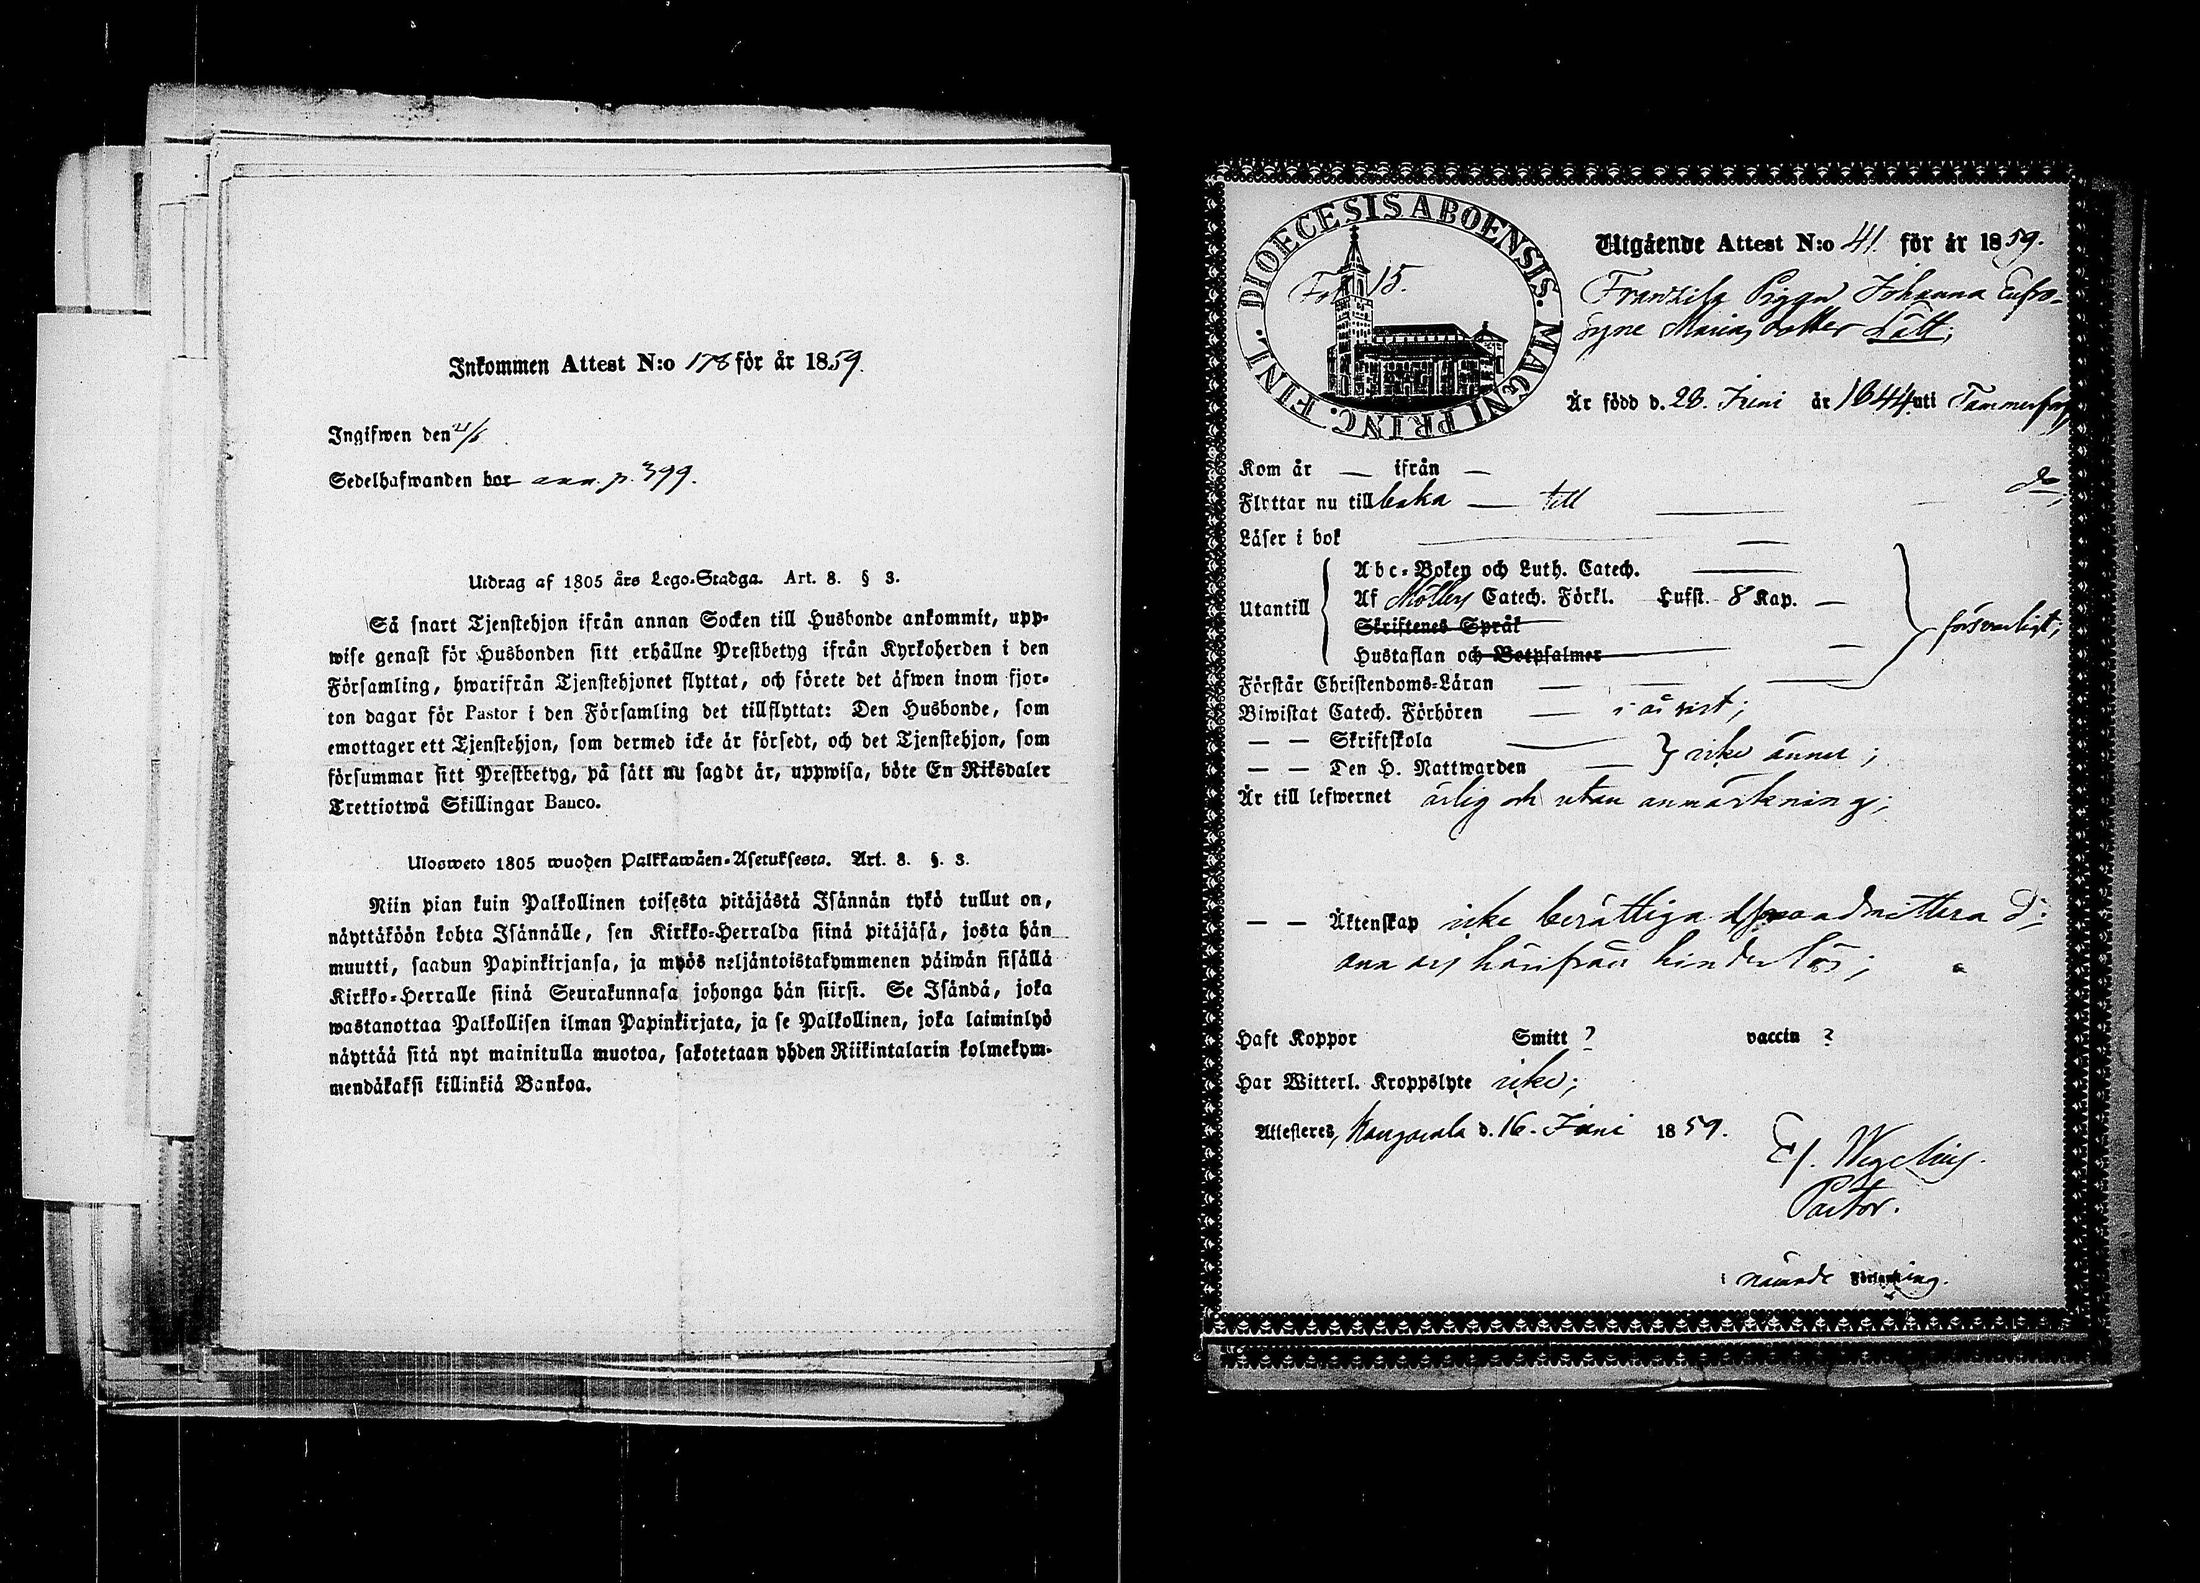 Inkommen Attest N:o 178 för år 1859.
Ingifwen den 21/6
Sedelhafwanden bor ann. p. 399.
Utdrag af 1805 års Lego-Stadga. Art. 8. § 3.
Så snart Tjenstehjon ifrån annan Socken till Husbonde ankommit, upp-
wise genast för Husbonden sitt erhållne Prestbetyg ifrån Kyrkoherden i den
Församling, hwarifrån Tjenstehjonet flyttat, och förete det äfwen inom fjor-
ton dagar för Pastor i den Församling det tillflyttat: Den Husbonde, som
emottager ett Tjenstehjon, som dermed icke är försedt, och det Tjenstehjon, som
försummar sitt Prestbetyg, på sätt nu sagdt är, uppwisa, böte En Riksdaler
Trettiotwå Skillingar Banco.
Ulosweto 1805 wuoden Palkkawäen-Asetuksesta. Art. 8. §. 3.
Niin pian kuin Palkollinen toisesta pitäjästä Isännän tykö tullut on,
näyttäköön kohta Isännälle, sen Kirkko-Herralda siinä pitäjäsä, josta hän
muutti, saadun Papinkirjansa, ja myös neljäntoistakymmenen päiwän sisällä
Kirkko-Herralle siinä Seurakunnasa johonga hän siirsi. Se Isändä, joka
wastanottaa Palkollisen ilman Papinkirjata, ja se Palkollinen, joka laiminlyö
näyttää sitä nyt mainitulla muotoa, sakotetaan yhden Riikintalarin kolmekym-
mendäkaksi killinkiä Bankoa.
DIOECESIS ABOENSIS. MAGNI PRINC. FINL.
Fol. 15.
Utgående Attest N:o 41. för år 1859.
Pigan Johanna Eufro-
syne Mariasdotter Lätt;
Är född d. 28. Juni år 1844 uti Tammerfors
Kom år — ifrån —
Flyttar nu tillbaka — till — do;
Läser i bok —
Utantill
Abc-Boken och Luth. Catech. —
Af Möllers Catech. Förkl. Hufst. 8 Kap. —
Skriftenes Språk
Hustaflan och Botpsalmer —
försvarligt;
Förstår Christendoms-Läran —
Biwistat Catech. Förhören — i år sist;
— — Skriftskola —
— — Den H. Nattwarden — icke ännu;
Är till lefwernet ärlig och utan anmärkning;
— — Äktenskap icke berättiga
härifrån hinderlös;
Haft Koppor Smitt ? vaccin ?
Har Witterl. Kroppslyte icke;
Attesteres, Kangasala d. 16. Juni 1859.
Wegelius.
Pastor.
i nämnde Församling.